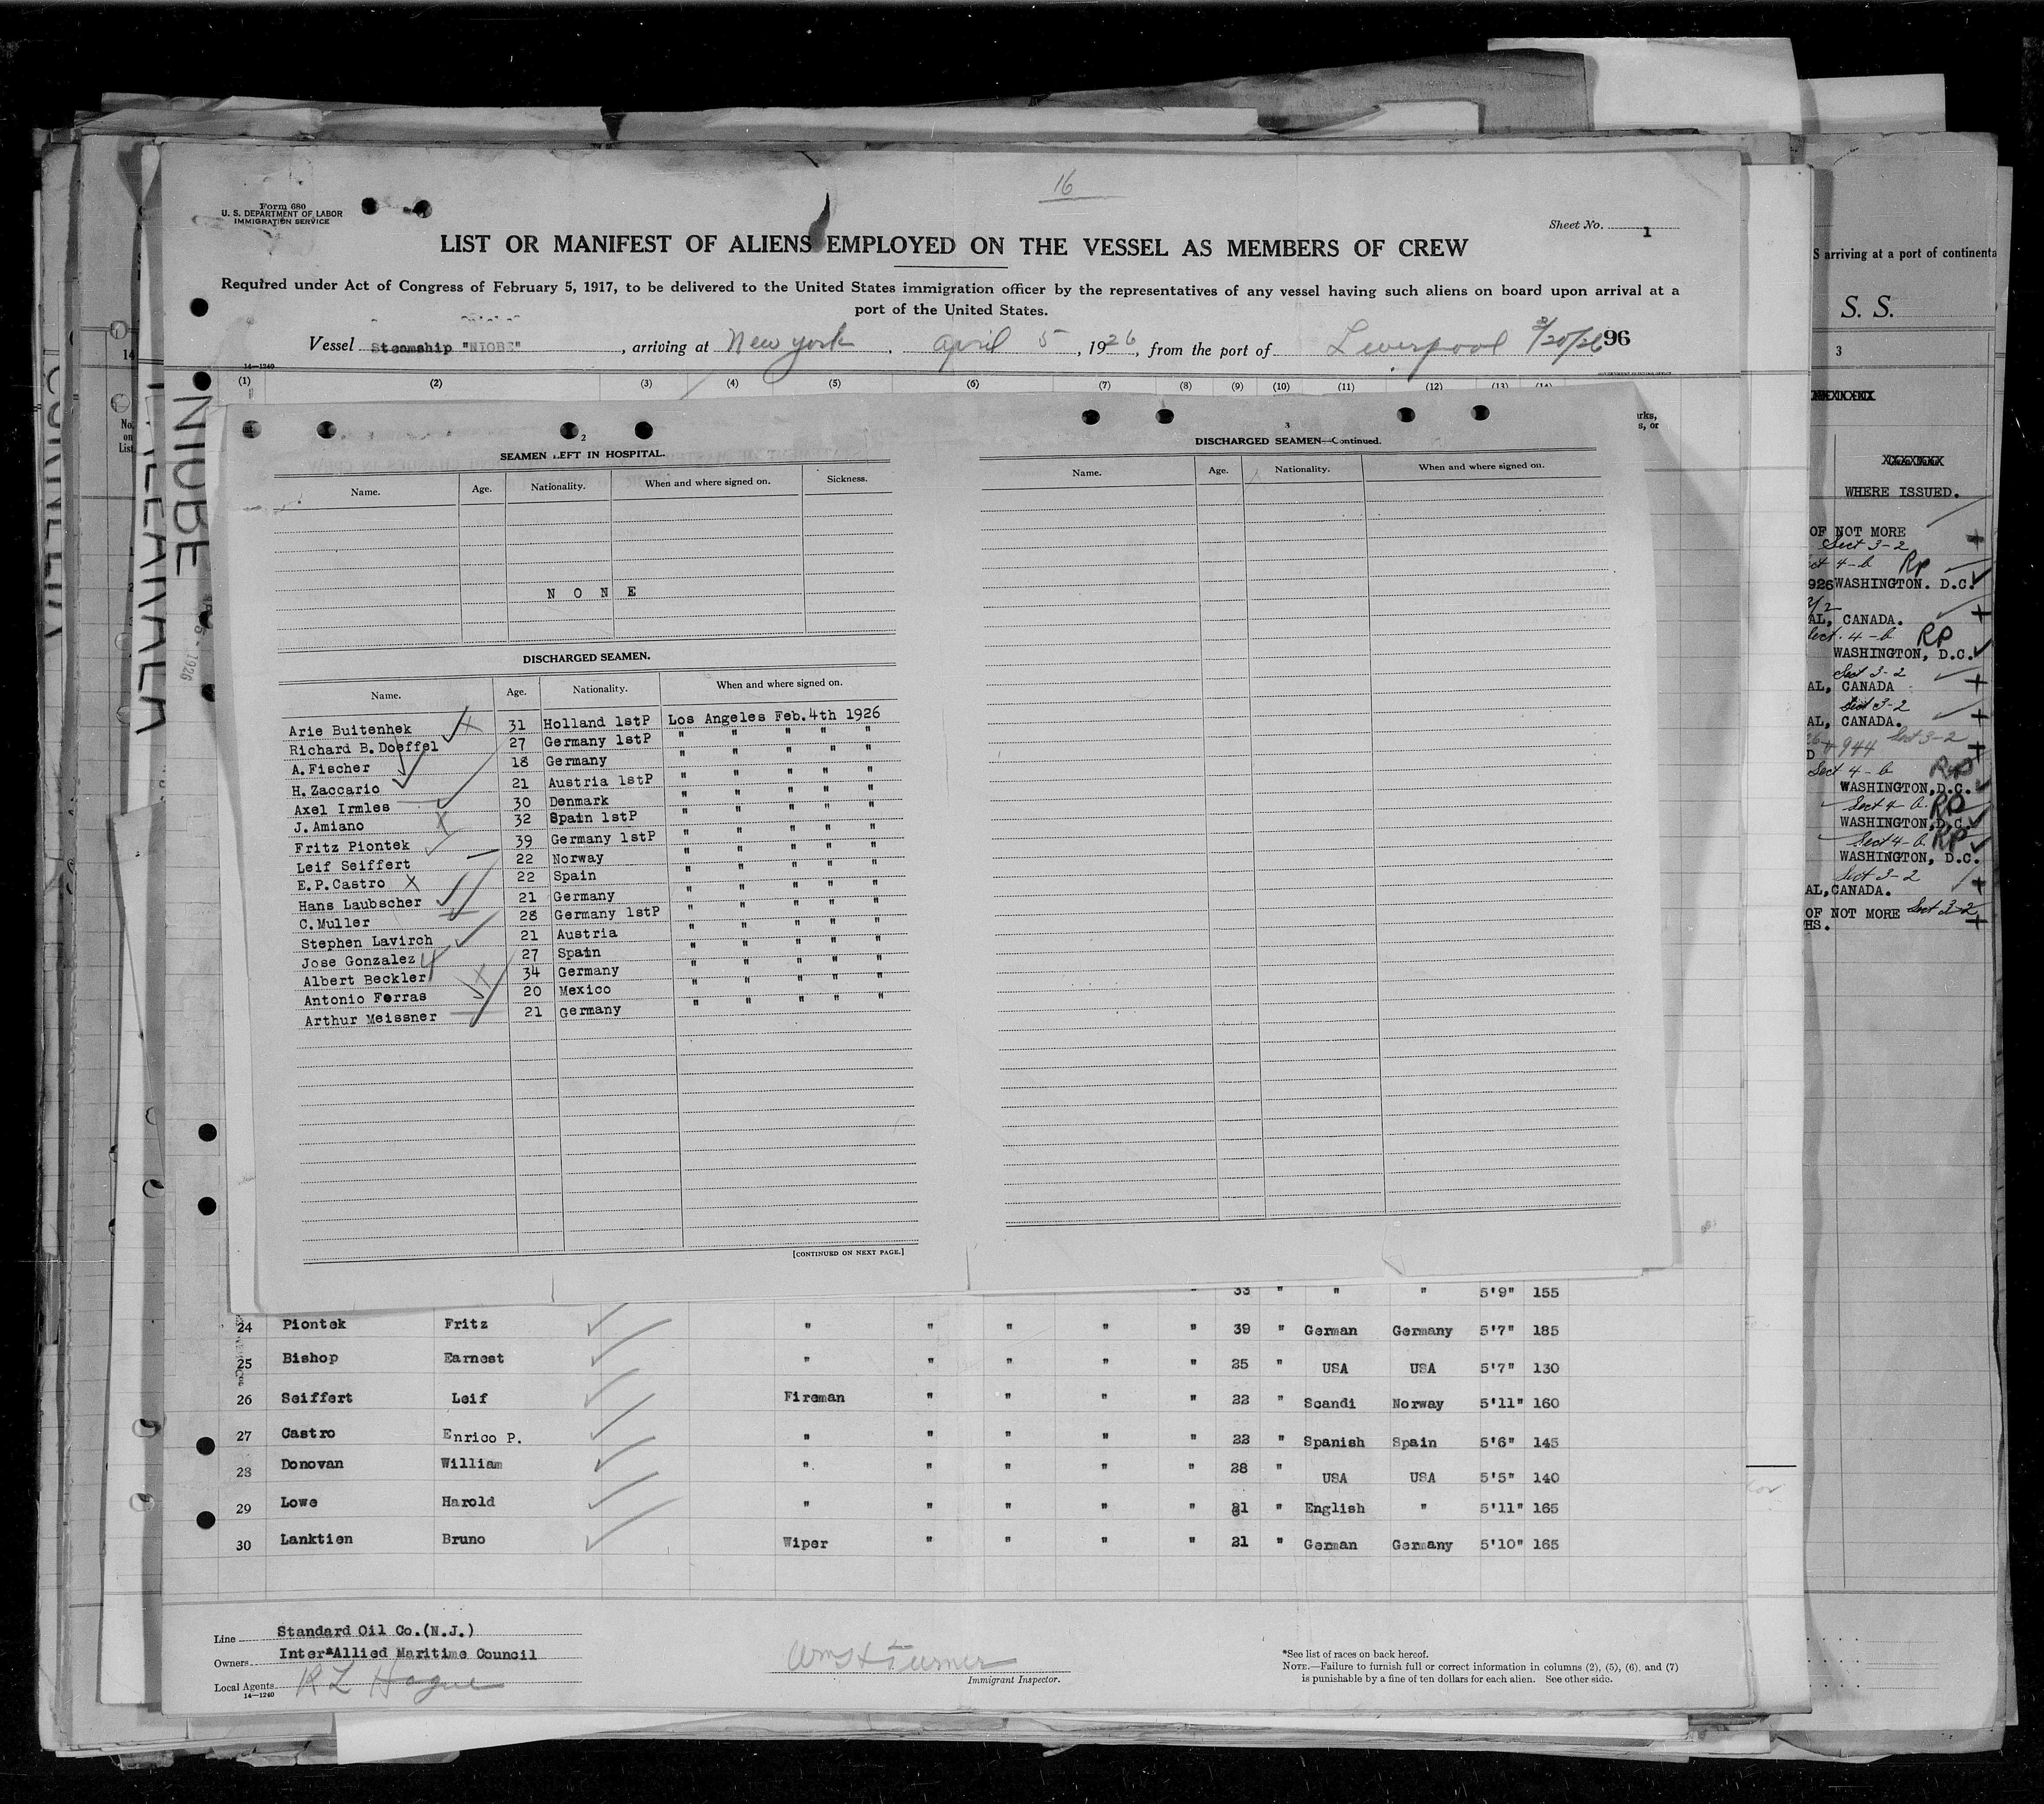 16
Form 680
U. S. DEPARTMENT OF LABOR
IMMIGRATION SERVICE
Sheet No. 1
LIST OR MANIFEST OF ALIENS EMPLOYED ON THE VESSEL AS MEMBERS OF CREW
Required under Act of Congress of February 5, 1917, to be delivered to the United States immigration officer by the representatives of any vessel having such aliens on board upon arrival at a
port of the United States.
Vessel Steamship "NIOBE", arriving at New York, April 5, 1926, from the port of Liverpool 3/20/26 96
14—1240
(1) (2) (3) (4) (5) (6) (7) (8) (9) (10) (11) (12) (13) (14)
2
SEAMEN LEFT IN HOSPITAL.
Name. Age. Nationality. When and where signed on. Sickness.
N O N E
DISCHARGED SEAMEN.
Name. Age. Nationality. When and where signed on.
Arie Buitenhek 31 Holland 1stP Los Angeles Feb.4th 1926
Richard B.Doeffel 27 Germany 1stP " " " " "
A.Fischer 18 Germany " " " " "
H.Zaccario 21 Austria 1stP " " " " "
Axel Irmles 30 Denmark " " " " "
J.Amiano 32 Spain 1stP " " " " "
Fritz Piontek 39 Germany 1stP " " " " "
Leif Seiffert 22 Norway " " " " "
E.P.Castro X 22 Spain " " " " "
Hans Laubscher 21 Germany " " " " "
C.Muller 28 Germany 1stP " " " " "
Stephen Lavirch 21 Austria " " " " "
Jose Gonzalez 27 Spain " " " " "
Albert Beckler 34 Germany " " " " "
Antonio Ferras 20 Mexico " " " " "
Arthur Meissner 21 Germany " " " " "
[CONTINUED ON NEXT PAGE.]
3
DISCHARGED SEAMEN—Continued.
Name. Age. Nationality. When and where signed on.
33 " " " 5'9" 155
24 Piontek Fritz " " " " " 39 " German Germany 5'7" 185
25 Bishop Earnest " " " " " 25 " USA USA 5'7" 130
26 Seiffert Leif Fireman " " " " 22 " Scandi Norway 5'11" 160
27 Castro Enrico P. " " " " " 22 " Spanish Spain 5'6" 145
28 Donovan William " " " " " 28 " USA USA 5'5" 140
29 Lowe Harold " " " " " 21 " English " 5'11" 165
30 Lanktien Bruno Wiper " " " " 21 " German Germany 5'10" 165
Line Standard Oil Co.(N.J.)
Owners Inter*Allied Maritime Council
Local Agents R L Hague
14—1240
Immigrant Inspector.
*See list of races on back hereof.
NOTE.—Failure to furnish full or correct information in columns (2), (5), (6), and (7)
is punishable by a fine of ten dollars for each alien. See other side.
NIOBE
14
No.
on
List
S arriving at a port of continenta
S. S.
3
WHERE ISSUED.
OF NOT MORE
Sect 3-2
ct 4-b RP
926 WASHINGTON. D.C.
AL, CANADA.
Sect. 4-b RP
WASHINGTON, D.C.
Sect 3-2
AL, CANADA
Sect 3-2
AL, CANADA.
944 Sect 3-2
D
Sect 4-b RP
WASHINGTON,D.C.
Sect 4-b. RP
WASHINGTON,D.C.
Sect 4-b RP
WASHINGTON, D.C.
Sect 3-2
AL,CANADA.
OF NOT MORE Sect 3-2
HS.